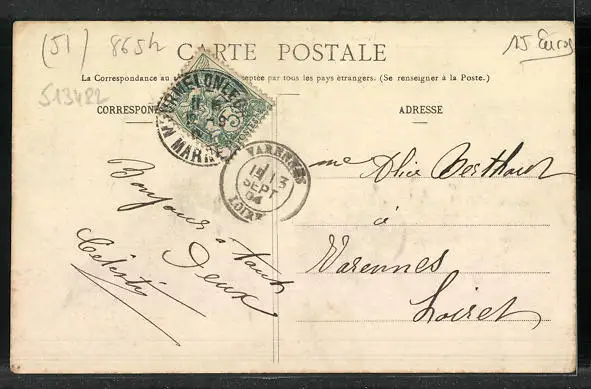 (51) 865h
15 Euros
513482
CARTE POSTALE
La Correspondance au acceptée par tous les pays étrangers. (Se renseigner à la Poste.)
CORRESPON
ADRESSE
MOURMELON-LE-G
MARNE
VARENNES
13
SEPT
04
LOIRET
Bonjour à tout
Deux
Célestin
Mme Alice Berthault
à
Varennes
Loiret